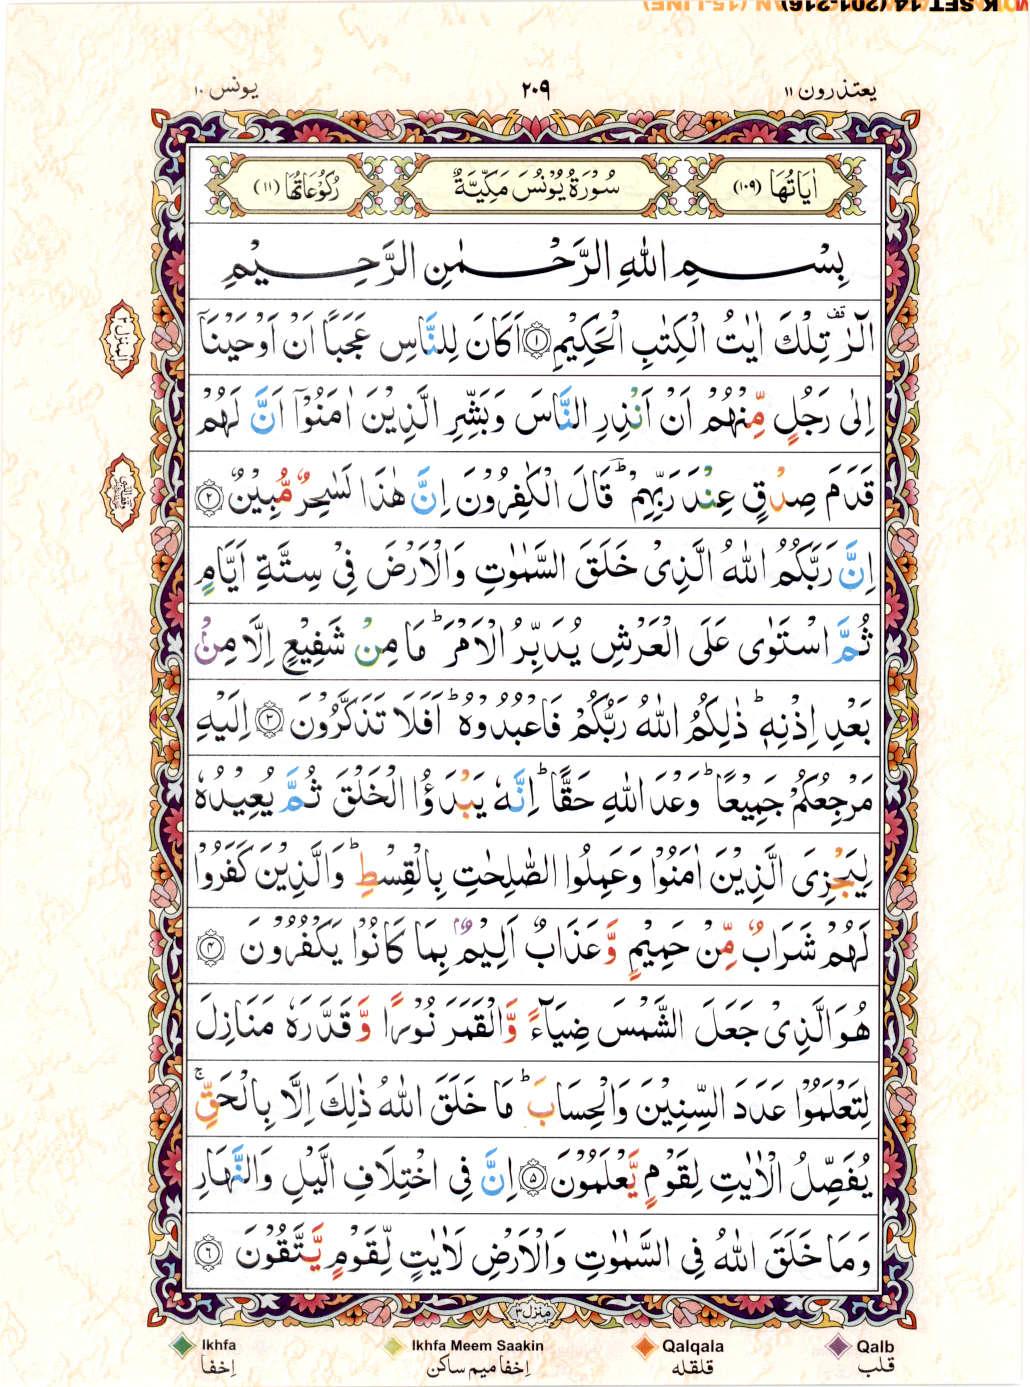 K SET 14 (201-216)
يعتذرون ١١
٢٠٩
يونس ١٠
اٰيَاتُهَا (١٠٩)
سُوْرَةُ يُوْنُسَ مَكِّيَّةٌ
رُكُوْعَاتُهَا (١١)
بِسْمِ اللهِ الرَّحْمٰنِ الرَّحِيْمِ
الٓرٰ قف تِلْكَ اٰيٰتُ الْكِتٰبِ الْحَكِيْمِ ١ اَكَانَ لِلنَّاسِ عَجَبًا اَنْ اَوْحَيْنَآ
اِلٰى رَجُلٍ مِّنْهُمْ اَنْ اَنْذِرِ النَّاسَ وَبَشِّرِ الَّذِيْنَ اٰمَنُوْٓا اَنَّ لَهُمْ
قَدَمَ صِدْقٍ عِنْدَ رَبِّهِمْ ؕ قَالَ الْكٰفِرُوْنَ اِنَّ هٰذَا لَسٰحِرٌ مُّبِيْنٌ ٢
اِنَّ رَبَّكُمُ اللهُ الَّذِىْ خَلَقَ السَّمٰوٰتِ وَالْاَرْضَ فِىْ سِتَّةِ اَيَّامٍ
ثُمَّ اسْتَوٰى عَلَى الْعَرْشِ يُدَبِّرُ الْاَمْرَ ؕ مَا مِنْ شَفِيْعٍ اِلَّا مِنْۢ
بَعْدِ اِذْنِهٖ ؕ ذٰلِكُمُ اللهُ رَبُّكُمْ فَاعْبُدُوْهُ ؕ اَفَلَا تَذَكَّرُوْنَ ٣ اِلَيْهِ
مَرْجِعُكُمْ جَمِيْعًا ؕ وَعْدَ اللهِ حَقًّا ؕ اِنَّهٗ يَبْدَؤُا الْخَلْقَ ثُمَّ يُعِيْدُهٗ
لِيَجْزِىَ الَّذِيْنَ اٰمَنُوْا وَعَمِلُوا الصّٰلِحٰتِ بِالْقِسْطِ ؕ وَالَّذِيْنَ كَفَرُوْا
لَهُمْ شَرَابٌ مِّنْ حَمِيْمٍ وَّعَذَابٌ اَلِيْمٌۢ بِمَا كَانُوْا يَكْفُرُوْنَ ٤
هُوَ الَّذِىْ جَعَلَ الشَّمْسَ ضِيَآءً وَّالْقَمَرَ نُوْرًا وَّقَدَّرَهٗ مَنَازِلَ
لِتَعْلَمُوْا عَدَدَ السِّنِيْنَ وَالْحِسَابَ ؕ مَا خَلَقَ اللهُ ذٰلِكَ اِلَّا بِالْحَقِّ ۚ
يُفَصِّلُ الْاٰيٰتِ لِقَوْمٍ يَّعْلَمُوْنَ ٥ اِنَّ فِى اخْتِلَافِ الَّيْلِ وَالنَّهَارِ
وَمَا خَلَقَ اللهُ فِى السَّمٰوٰتِ وَالْاَرْضِ لَاٰيٰتٍ لِّقَوْمٍ يَّتَّقُوْنَ ٦
المنزل ٣
منزل ٣
Ikhfa
اِخفا
Ikhfa Meem Saakin
اِخفا ميم ساكن
Qalqala
قلقله
Qalb
قلب